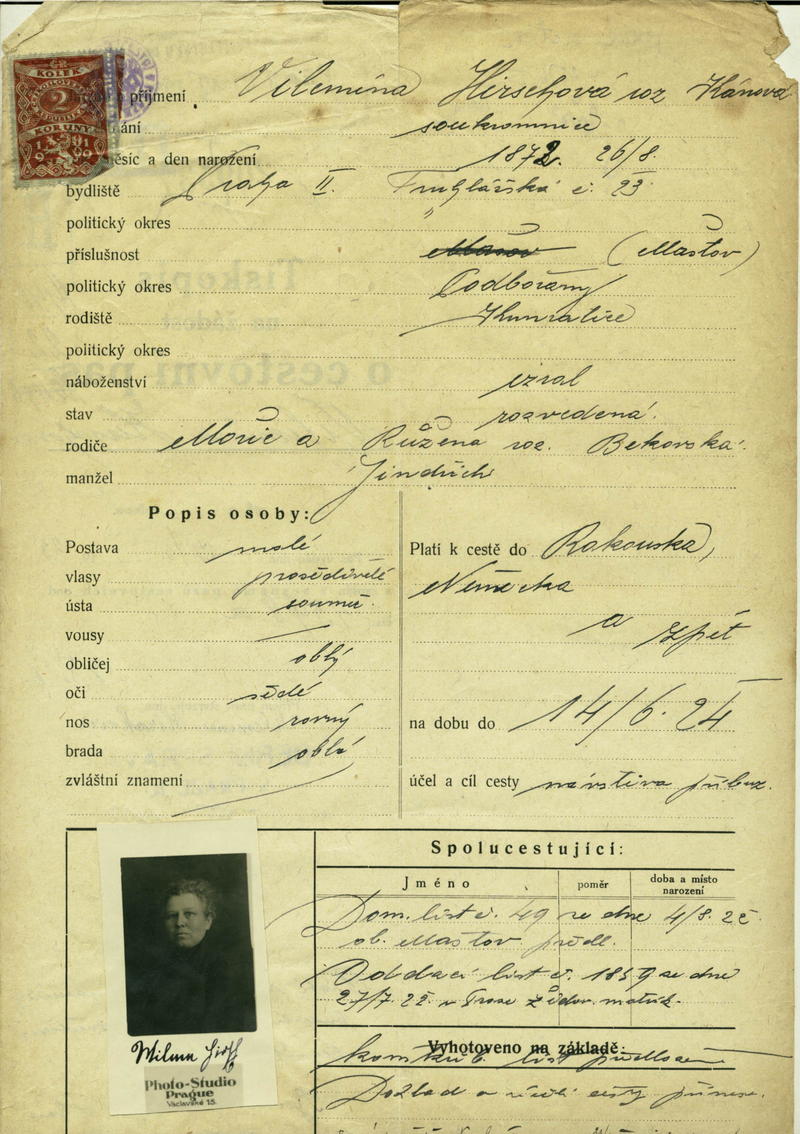 ČR
KOLEK
2
KORUNY
příjmení Vilemína Hirschová roz Kánová
ání soukromnice
ěsíc a den narození 1872. 26/8.
bydliště Praha II. Truhlářská č. 23.
politický okres "
příslušnost Mašov (Mašťov)
politický okres Podbořany
rodiště Kunratice
politický okres
náboženství izral
stav rozvedená.
rodiče Mořic a Růžena roz. Bekovská.
manžel Jindřich
Popis osoby:
Postava malé
vlasy prošedivělé
ústa souměr.
vousy
obličej oblý
oči šedé
nos rovný
brada oblá
zvláštní znamení
Platí k cestě do Rakouska,
Německa
a zpět
na dobu do 14/6. 24
účel a cíl cesty návštěva příbuz.
Spolucestující:
Jméno poměr doba a místo narození
Dom. list č. 49 ze dne 4/8. 22
ob. Mašťov předl.
Oddací list č. 1859 ze dne
27/7. 22. židov. matrik.
Vyhotoveno na základě:
list předložen
cesty
Wilma Hirsch
Photo-Studio
Prague
Václavské 15.